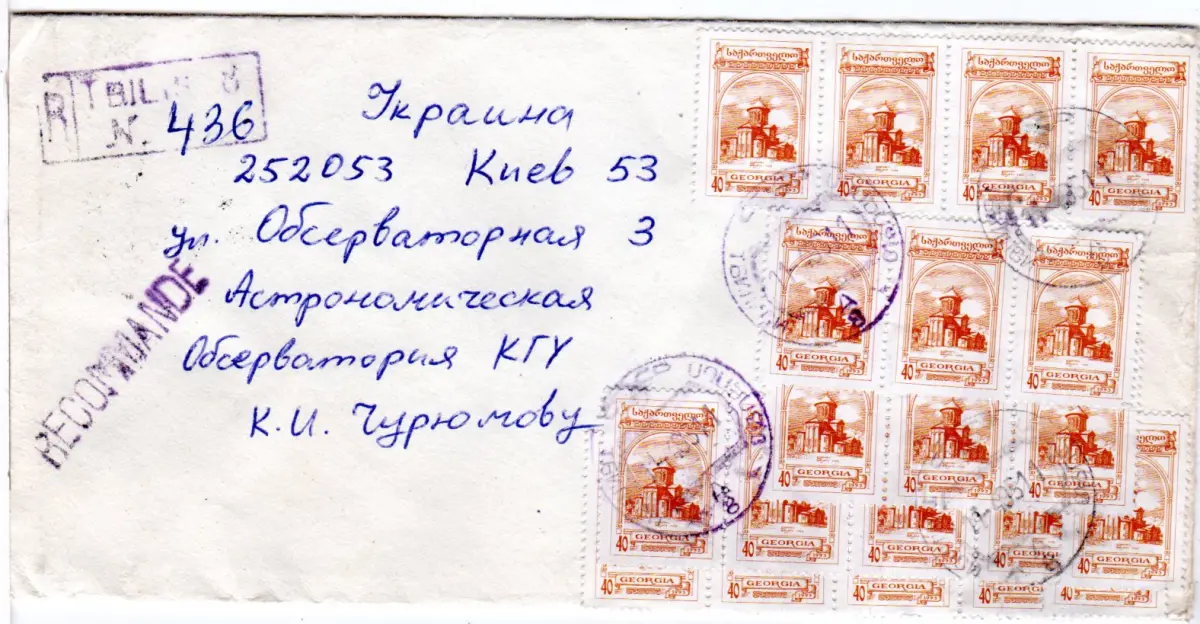 R
N. 436
Украина
252053 Киев 53
ул. Обсерваторная 3
Астрономическая
Обсерватория КГУ
К.И. Чурюмову
RECOMMANDE
საქართველო საქართველო საქართველო საქართველო
40 GEORGIA 40 GEORGIA 40 GEORGIA 40 GEORGIA
საქართველო საქართველო საქართველო
40 GEORGIA 40 GEORGIA 40 GEORGIA
საქართველო
40 GEORGIA 40 GEORGIA 40 GEORGIA
40 GEORGIA 40 GEORGIA 40 GEORGIA 40 GEORGIA 40 GEORGIA
40 GEORGIA 40 GEORGIA 40 GEORGIA 40 GEORGIA 40 GEORGIA